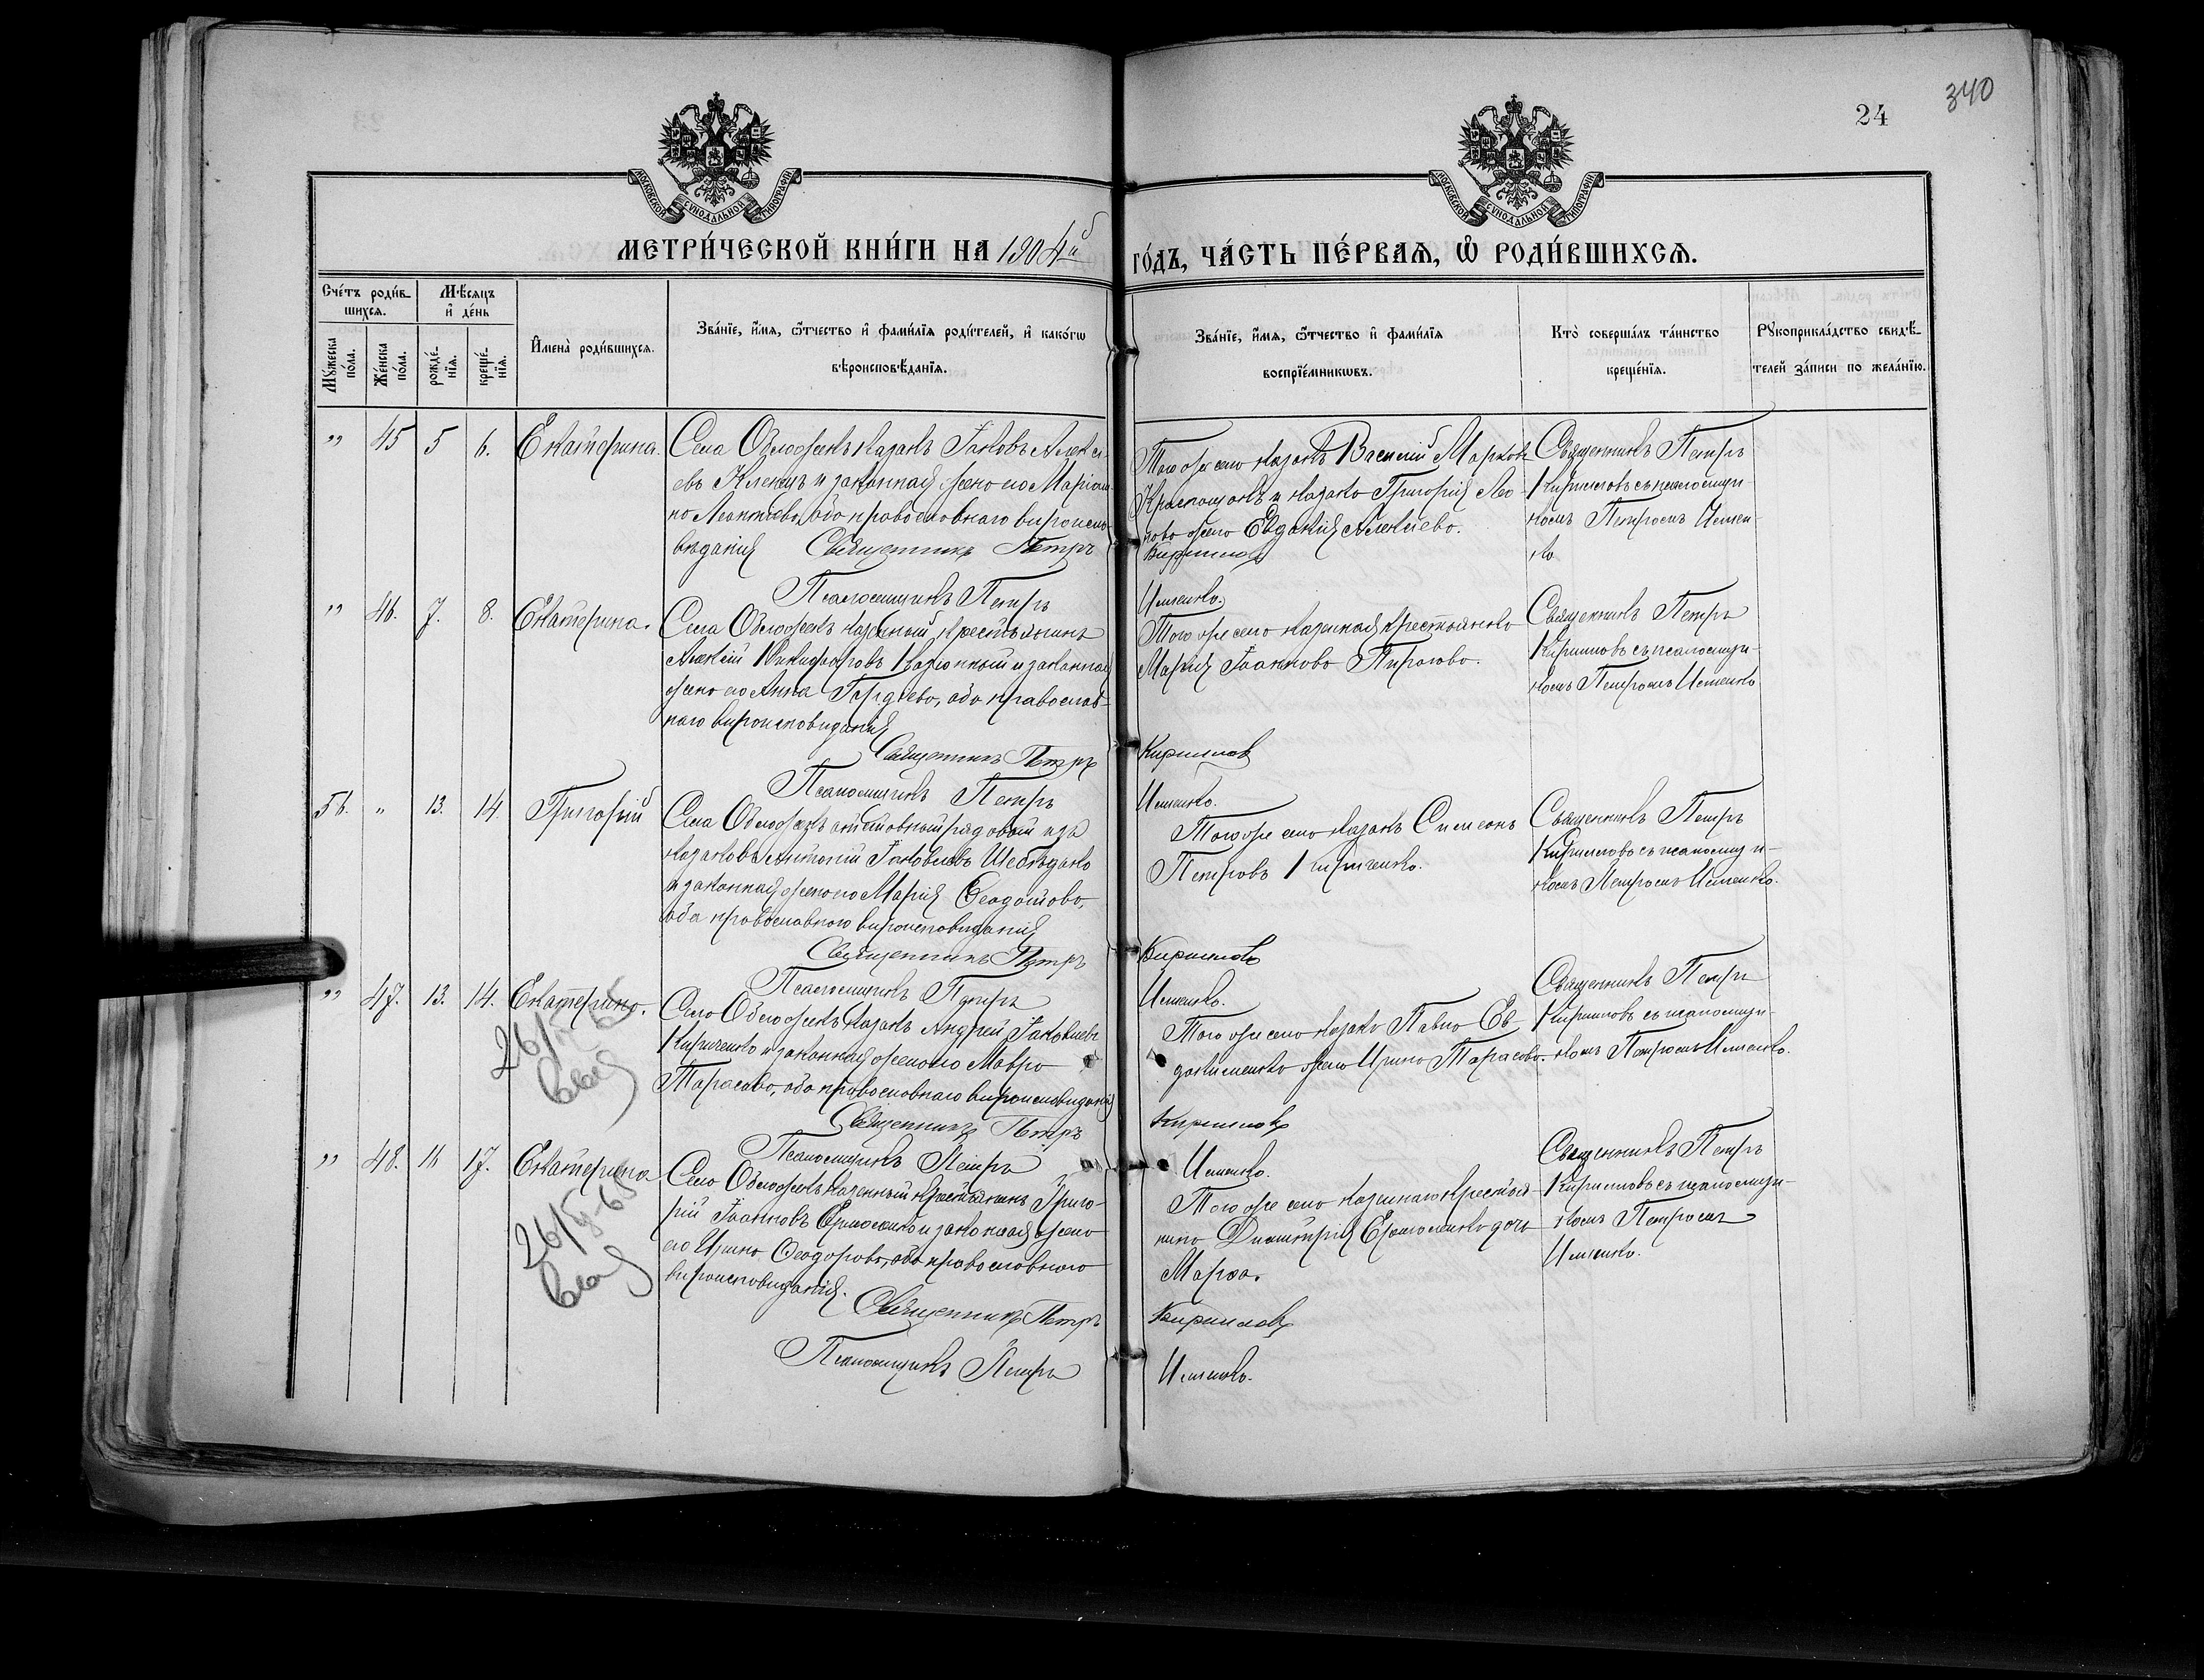 340
24
МОСКОВСКОЙ СУНОДАЛЬНОЙ ТИПОГРАФІИ
МОСКОВСКОЙ СУНОДАЛЬНОЙ ТИПОГРАФІИ
МЕТРИ́ЧЕСКОЙ КНИ́ГИ НА 1904й ГО́ДЪ, ЧА́СТЬ ПЕ́РВАѦ, Ѡ РОДИ́ВШИХСѦ.
Сче́тъ роди́в-
шихсѧ.
Мꙋ́жеска по́ла.
Же́нска по́ла.
Мѣ́сѧцъ и де́нь
рожде́-
нїѧ.
креще́-
нїѧ.
Имена̀ роди́вшихсѧ.
Зва́нїе, и́мѧ, ѻ́тчество и фами́лїѧ роди́телей, и како́гѡ
вѣроисповѣ́данїѧ.
Зва́нїе, и́мѧ, ѻ́тчество и фами́лїѧ
воспрїе́мникѡвъ.
Кто̀ соверша́лъ та́инство
креще́нїѧ.
Рꙋкоприкла́дство свидѣ́-
телей за́писи по жела́нїю.
" 45 5 6. Екатерина.
Села Обложекъ казакъ Іаковъ Алексі-
евъ Клепацъ и законная жена его Маріам-
на Леонтіева, оба православнаго вироиспо-
вѣданія Священникъ Петръ
Псаломщикъ Петръ
Того же села казакъ Василій Марковъ
и казака Григорія Ле-
жена Евдокія Алексіева.
Кирилловъ
Ищенко.
Священникъ Петръ
Кирилловъ съ псаломщи-
комъ Петромъ Ищен-
ко
" 46. 7. 8. Екатерина.
Села Обложекъ казеный крестьянинъ
Алексій Никифоровъ и законная
жена его Анна Гордіева, оба православ-
наго вироисповиданія
Священникъ Петръ
Псаломщикъ Петръ
Того же села казенная крестьянка
Марія Іоаннова Пирогова.
Кирилловъ
Ищенко.
Священникъ Петръ
Кирилловъ съ псаломщи-
комъ Петромъ Ищенко
56. " 13. 14. Григорій
Села Обложекъ рядовой изъ
казаковъ Антоній Іаковлевъ
и законная жена его Марія Ѳеодотова,
оба православного вироисповиданія
Священникъ Петръ
Псаломщикъ Петръ
Того же села казакъ Симеонъ
Петровъ Кириченко.
Кирилловъ
Ищенко.
Священникъ Петръ
Кирилловъ съ псаломщи-
комъ Петромъ Ищенко.
" 47. 13. 14. Екатерина.
Села Обложекъ казакъ Андрей Іаковлевъ
Кириченко и законная жена его Мавра
Тарасова, оба православнаго вироисповиданія
Священникъ Петръ
Псаломщикъ Петръ
Того же села казака Павла Ев-
докименко жена Ирина Тарасова.
Кирилловъ
Ищенко.
Священникъ Петръ
Кирилловъ съ псаломщи-
комъ Петромъ Ищенко.
" 48. 16 17. Екатерина
26/V-65
Села Обложекъ казенный крестьянинъ Григо-
рій Іоанновъ Ермоленко и законная жена
его Ирина Ѳеодорова, оба православного
вироисповиданія.
Священникъ Петръ
Псаломщикъ Петръ
Того же села казеннаго крестья-
нина Димитрія Ермоленко дочь
Марѳа.
Кирилловъ
Ищенко.
Священникъ Петръ
Кирилловъ съ псаломщи-
комъ Петромъ
Ищенко.